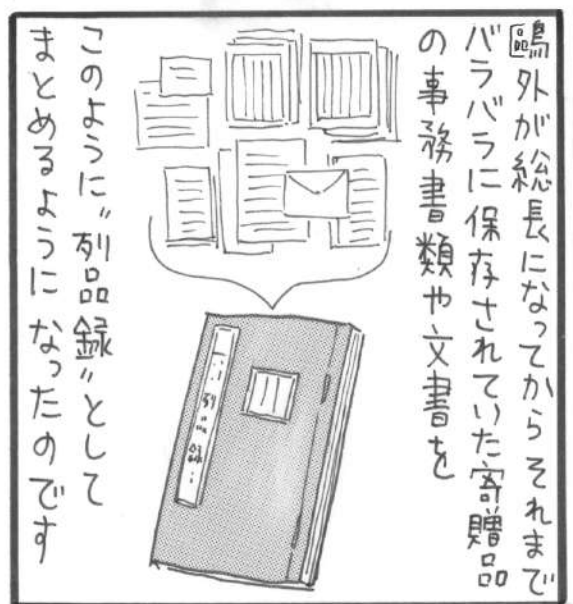 鷗外が総長になってからそれまで
バラバラに保存されていた寄贈品
の事務書類や文書を
このように〝列品録〟として
まとめるように なったのです
列品録